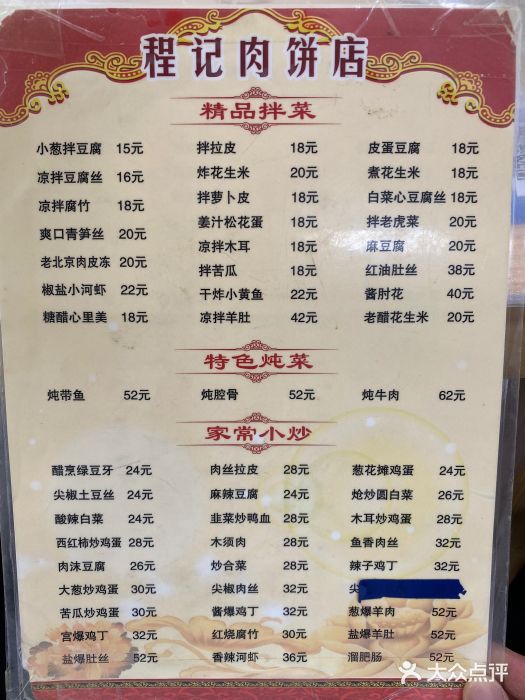 程记肉饼店
精品拌菜
小葱拌豆腐 15元 拌拉皮 18元 皮蛋豆腐 18元
凉拌豆腐丝 16元 炸花生米 20元 煮花生米 18元
凉拌腐竹 18元 拌萝卜皮 18元 白菜心豆腐丝 18元
爽口青笋丝 20元 姜汁松花蛋 18元 拌老虎菜 20元
老北京肉皮冻 20元 凉拌木耳 18元 麻豆腐 20元
椒盐小河虾 22元 拌苦瓜 18元 红油肚丝 38元
糖醋心里美 18元 干炸小黄鱼 22元 酱肘花 40元
凉拌羊肚 42元 老醋花生米 20元
特色炖菜
炖带鱼 52元 炖腔骨 52元 炖牛肉 62元
家常小炒
醋烹绿豆牙 24元 肉丝拉皮 28元 葱花摊鸡蛋 24元
尖椒土豆丝 24元 麻辣豆腐 24元 炝炒圆白菜 26元
酸辣白菜 24元 韭菜炒鸭血 28元 木耳炒鸡蛋 28元
西红柿炒鸡蛋 28元 木须肉 28元 鱼香肉丝 32元
肉沫豆腐 26元 炒合菜 28元 辣子鸡丁 32元
大葱炒鸡蛋 30元 尖椒肉丝 32元 尖
苦瓜炒鸡蛋 30元 酱爆鸡丁 32元 葱爆羊肉 52元
宫爆鸡丁 32元 红烧腐竹 30元 盐爆羊肚 52元
盐爆肚丝 52元 香辣河虾 36元 溜肥肠 52元
大众点评